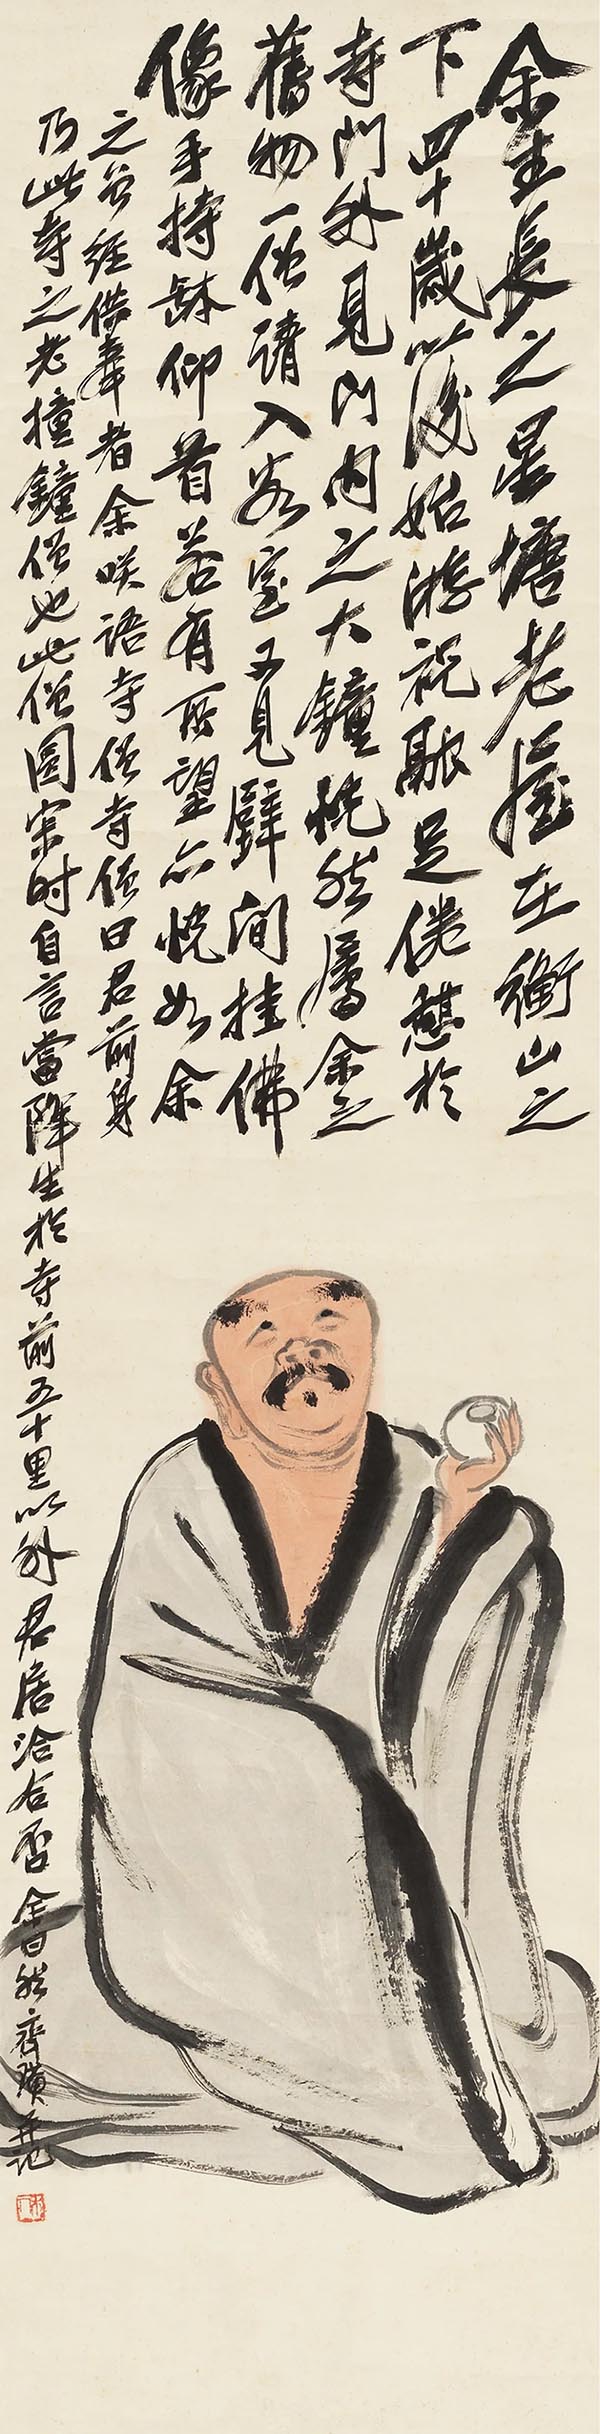 余生長之星塘老屋在衡山之
下四十歲以後始游祝融足倦憩於
寺門外見門內之大鐘恍然屬余之
舊物一僧請入客室又見壁間挂佛
像手持缽仰首若有所望亦恍如余
之曾經供奉者余咲語寺僧寺僧曰君前身
乃此寺之老撞鐘僧也此僧圓寂時自言當降生於寺前五十里以外君居洽合否余曰然齊璜并記